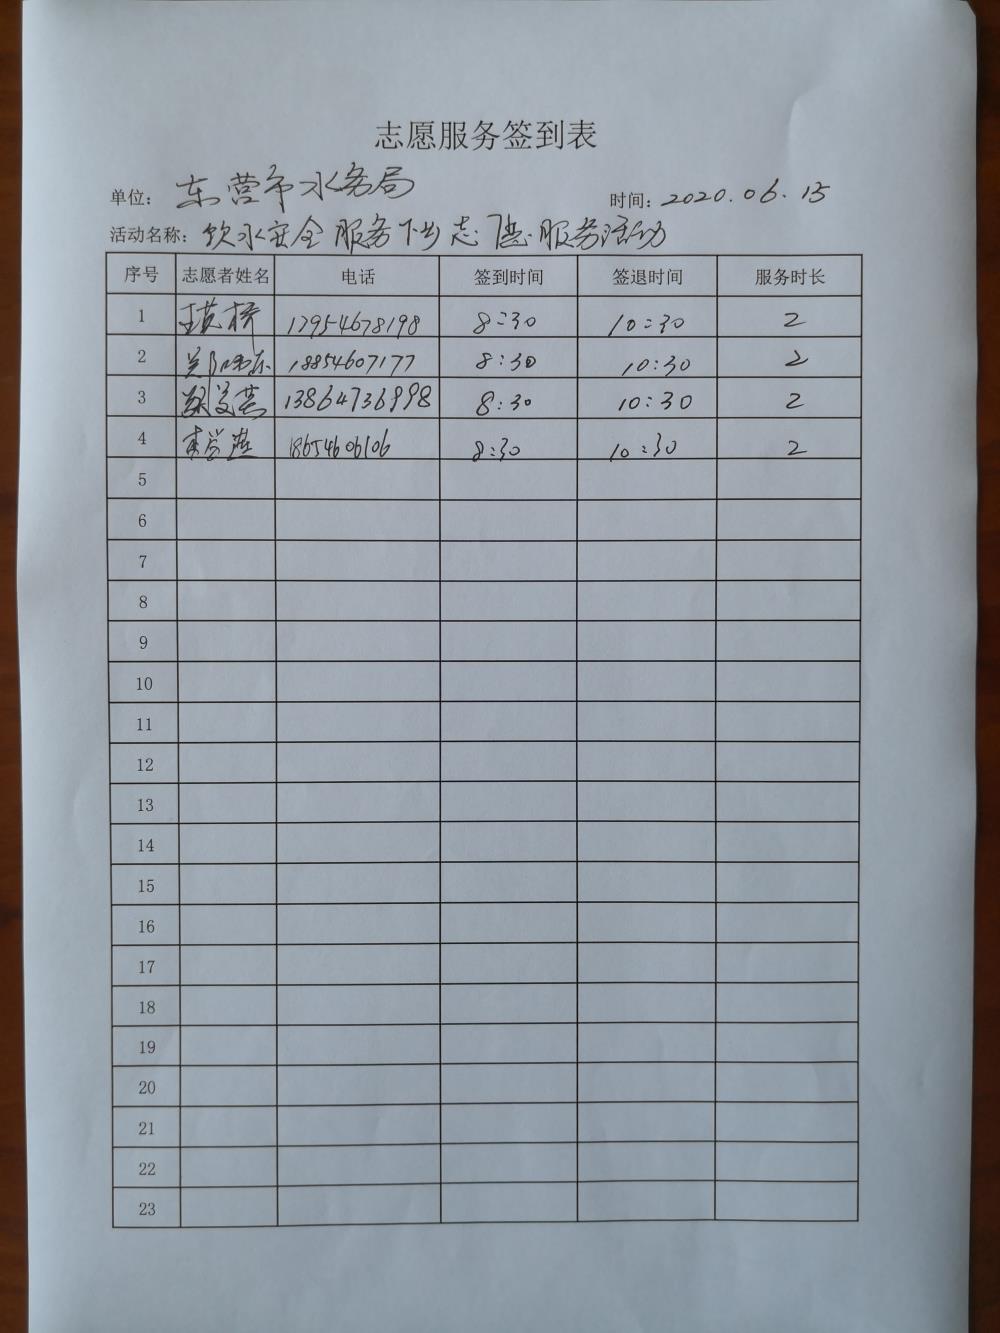 志愿服务签到表
单位: 东营市水务局 时间: 2020.06.15
活动名称: 饮水安全服务下乡志愿服务活动
序号 志愿者姓名 电话 签到时间 签退时间 服务时长
1 17954678198 8:30 10:30 2
2 18854607177 8:30 10:30 2
3 13864736998 8:30 10:30 2
4 18654606106 8:30 10:30 2
5
6
7
8
9
10
11
12
13
14
15
16
17
18
19
20
21
22
23